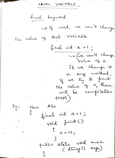 FINAL VARIABLE
final keyword
→ If used, we can't change
the value of that variable.
final int a=1;
→ we can't change
value of a.
If we change it
in any method,
if we try to print
the value of a, there
will be compilation
error)
eg. class Abc
{ final int a=1;
void print()
{
a=10;
}
public static void main
(String[] args)